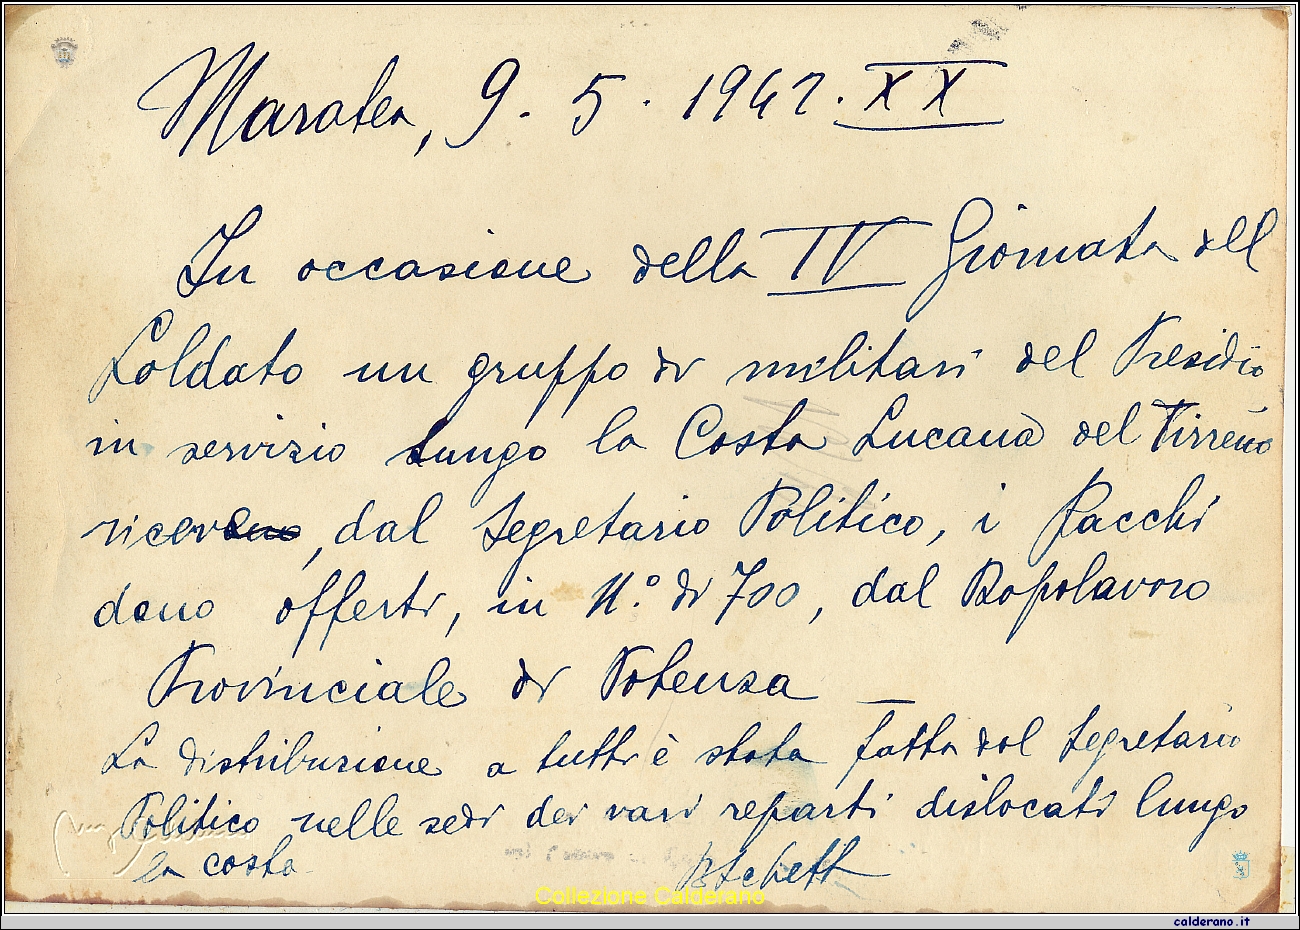 Maratea, 9. 5. 1942. XX
In occasione della IV Giornata del
Soldato un gruppo di militari del Presidio
in servizio lungo la Costa Lucana del Tirreno
ricev, dal Segretario Politico, i pacchi
dono offerti, in N.° di 700, dal Dopolavoro
Provinciale di Potenza
La distribuzione a tutti è stata fatta dal Segretario
Politico nelle sedi dei vari reparti dislocati lungo
la costa
Collezione Calderano
calderano.it